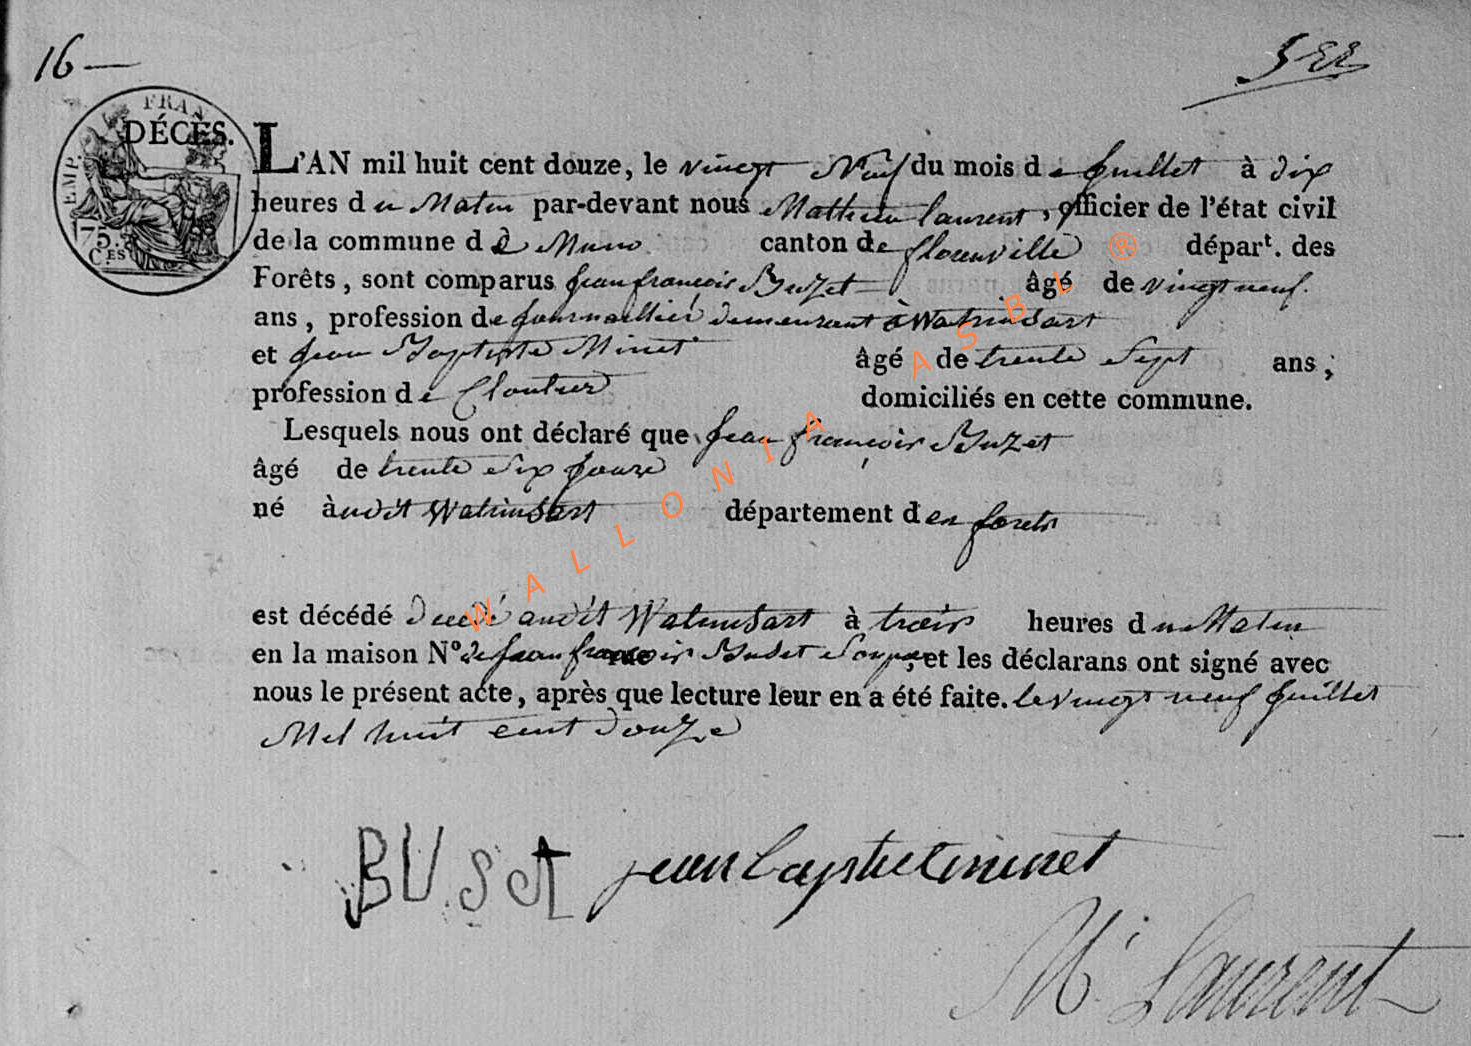 16 —
FRAN
EMP.
75.
C.ES
DÉCÈS.
L'AN mil huit cent douze, le vingt Neuf du mois de juillet à dix
heures du Matin par-devant nous Mathieu laurent, officier de l'état civil
de la commune de Muno canton de florenville départ. des
Forêts, sont comparus jean françois Buzet âgé de vingt neuf
ans, profession de demeurant à Watrinsart
et jean Baptiste Minet âgé de trente Sept ans;
profession de Cloutier domiciliés en cette commune.
Lesquels nous ont déclaré que jean françois Buzet
âgé de trente Six jours
né àudit Watrinsart département des forets
est décédé décédé audit Watrinsart à trois heures du Matin
en la maison N° de jean françois Buset Son pere, et les déclarans ont signé avec
nous le présent acte, après que lecture leur en a été faite. le vingt neuf juillet
Mil huit cent douze
BUSET jean baptiste minet
M. Laurent
WALLONIA ASBL ®